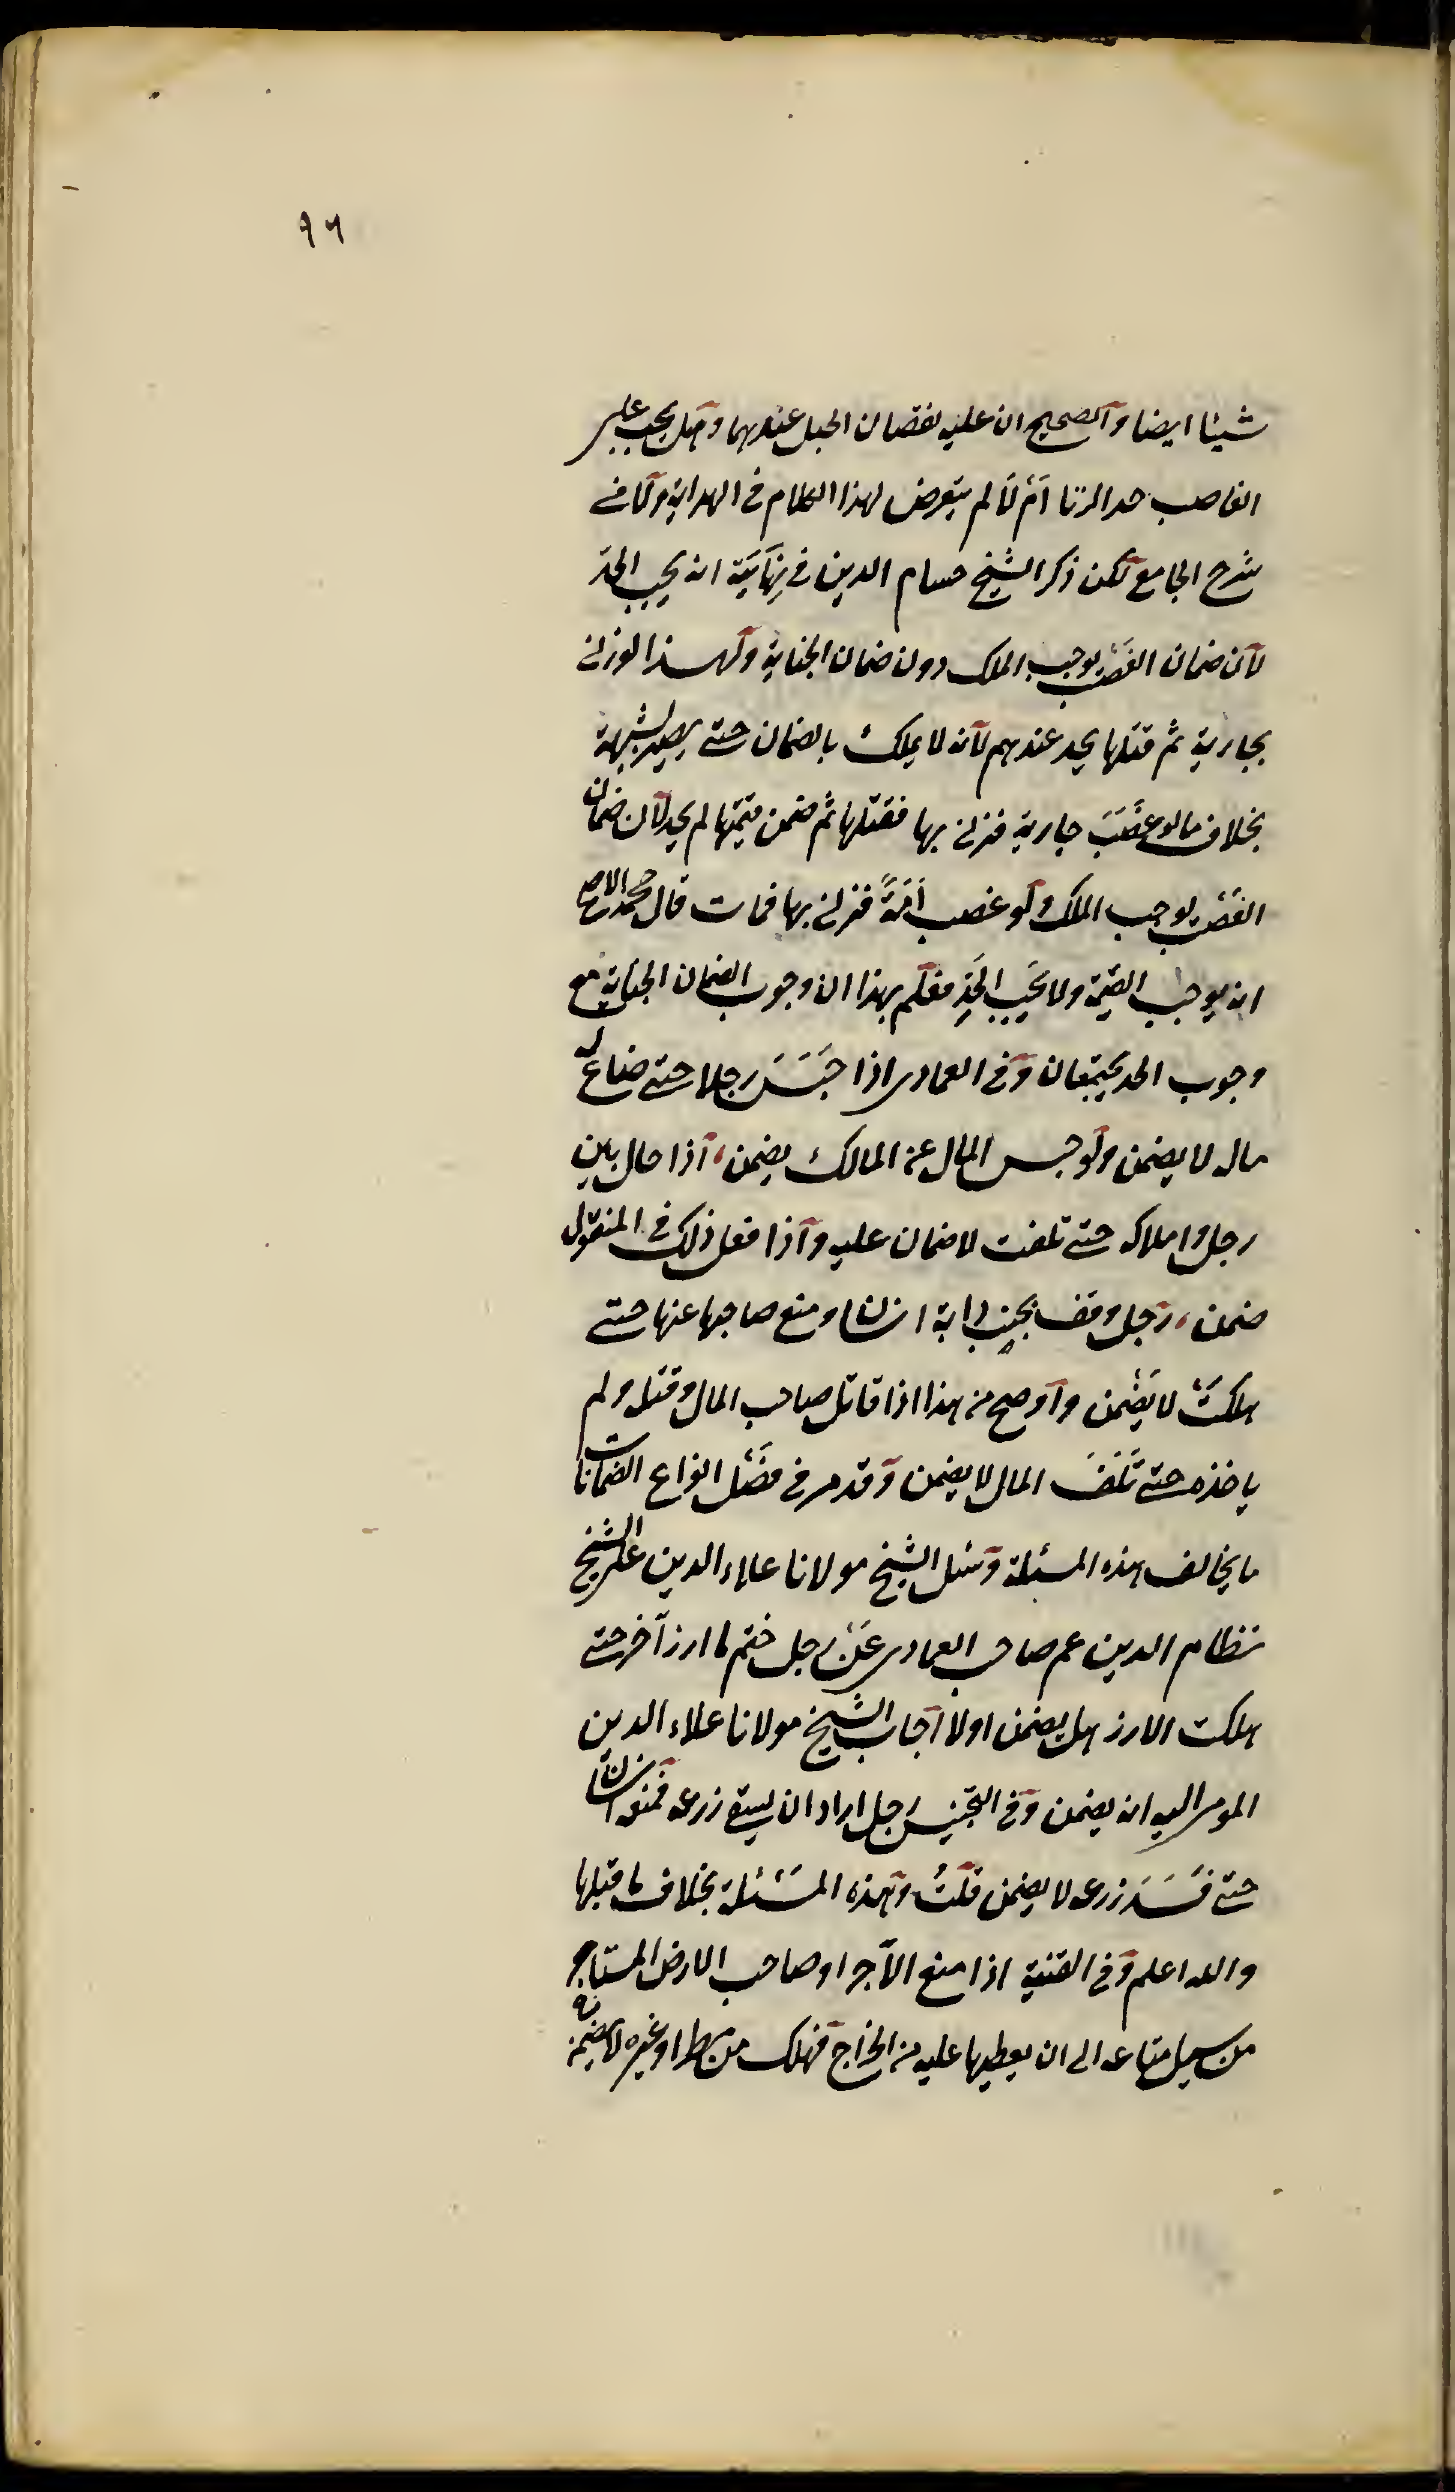 ٩٦
شيئا ايضا والصحيح ان عليه نقصان الحبل عندهما وهل يجب على
الغاصب حد الزنا اَمْ لَا لم يتعرض لهذا الكلام فى الهداية ولا فى
شرح الجامع لكن ذكر الشيخ حسام الدين فى نهايته انه يجب الحدّ
لان ضمان الغصب يوجب الملك دون ضمان الجناية ولهذا لو زنى
بجارية ثم قتلها يحد عندهم لانه لا يملك بالضمان حتى يصير شبهة
بخلاف ما لو غصَبَ جارية فزنى بها فقتلها ثم ضمن قيمتها لم يحد لان ضمان
الغصب يوجب الملك ولو غصب اَمَةً فزنى بها فماتت قال محمد الاصح
انه يوجب القيمة ولا يجب الحد فعلم بهذا ان وجوب الضمان الجناية مع
وجوب الحد يجتمعان وفى العمادى اذا حَبَسَ رجلا حتى ضاع له
مال لا يضمن ولو حبس المال عن المالك يضمن، اذا حال بين
رجل واملاكه حتى تلفت لا ضمان عليه واذا فعل ذلك فى المنقول
ضمن، رجل وقف بجنب دابة انسان ومنع صاحبها عنها حتى
هلكتْ لا يَضْمن واوضح من هذا اذا قاتل صاحب المال وقتله ولم
ياخذه حتى تَلَفَ المال لا يضمن وقد مر فى فصْل انواع الضمانات
ما يخالف هذه المسئلة وسئل الشيخ مولانا علاء الدين على الشيخ
نظام الدين عم صاحب العمادى عَنْ رجل ختم ارز آخر حتى
هلكت الارز هل يضمن اولا اجاب الشيخ مولانا علاء الدين
المومى اليه انه يضمن وفى التجنيس رجل اراد ان يسقى زرعه فمنعه انسان
حتى فَسَدَ زرعه لا يضمن قلتُ وهذه المسْئلة بخلاف ما قبلها
والله اعلم وفى القنية اذا منع الآجر او صاحب الارض المستاجر
من سبيل متاعه الى ان يعطيها عليه من الخراج فهلك من مطر او غيره لا يضمنه